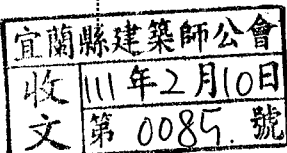 宜蘭縣建築師公會
收文
111年2月10日
第 0085. 號